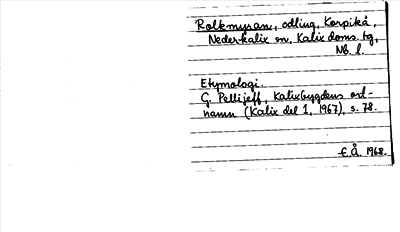 Rolkmyran, odling, Korpikå,
Nederkalix sn, Kalix doms. tg,
Nb. l.
Etymologi.
G. Pellijeff, Kalixbygdens ort-
namn (Kalix del 1, 1967), s. 78.
E.Å. 1968.